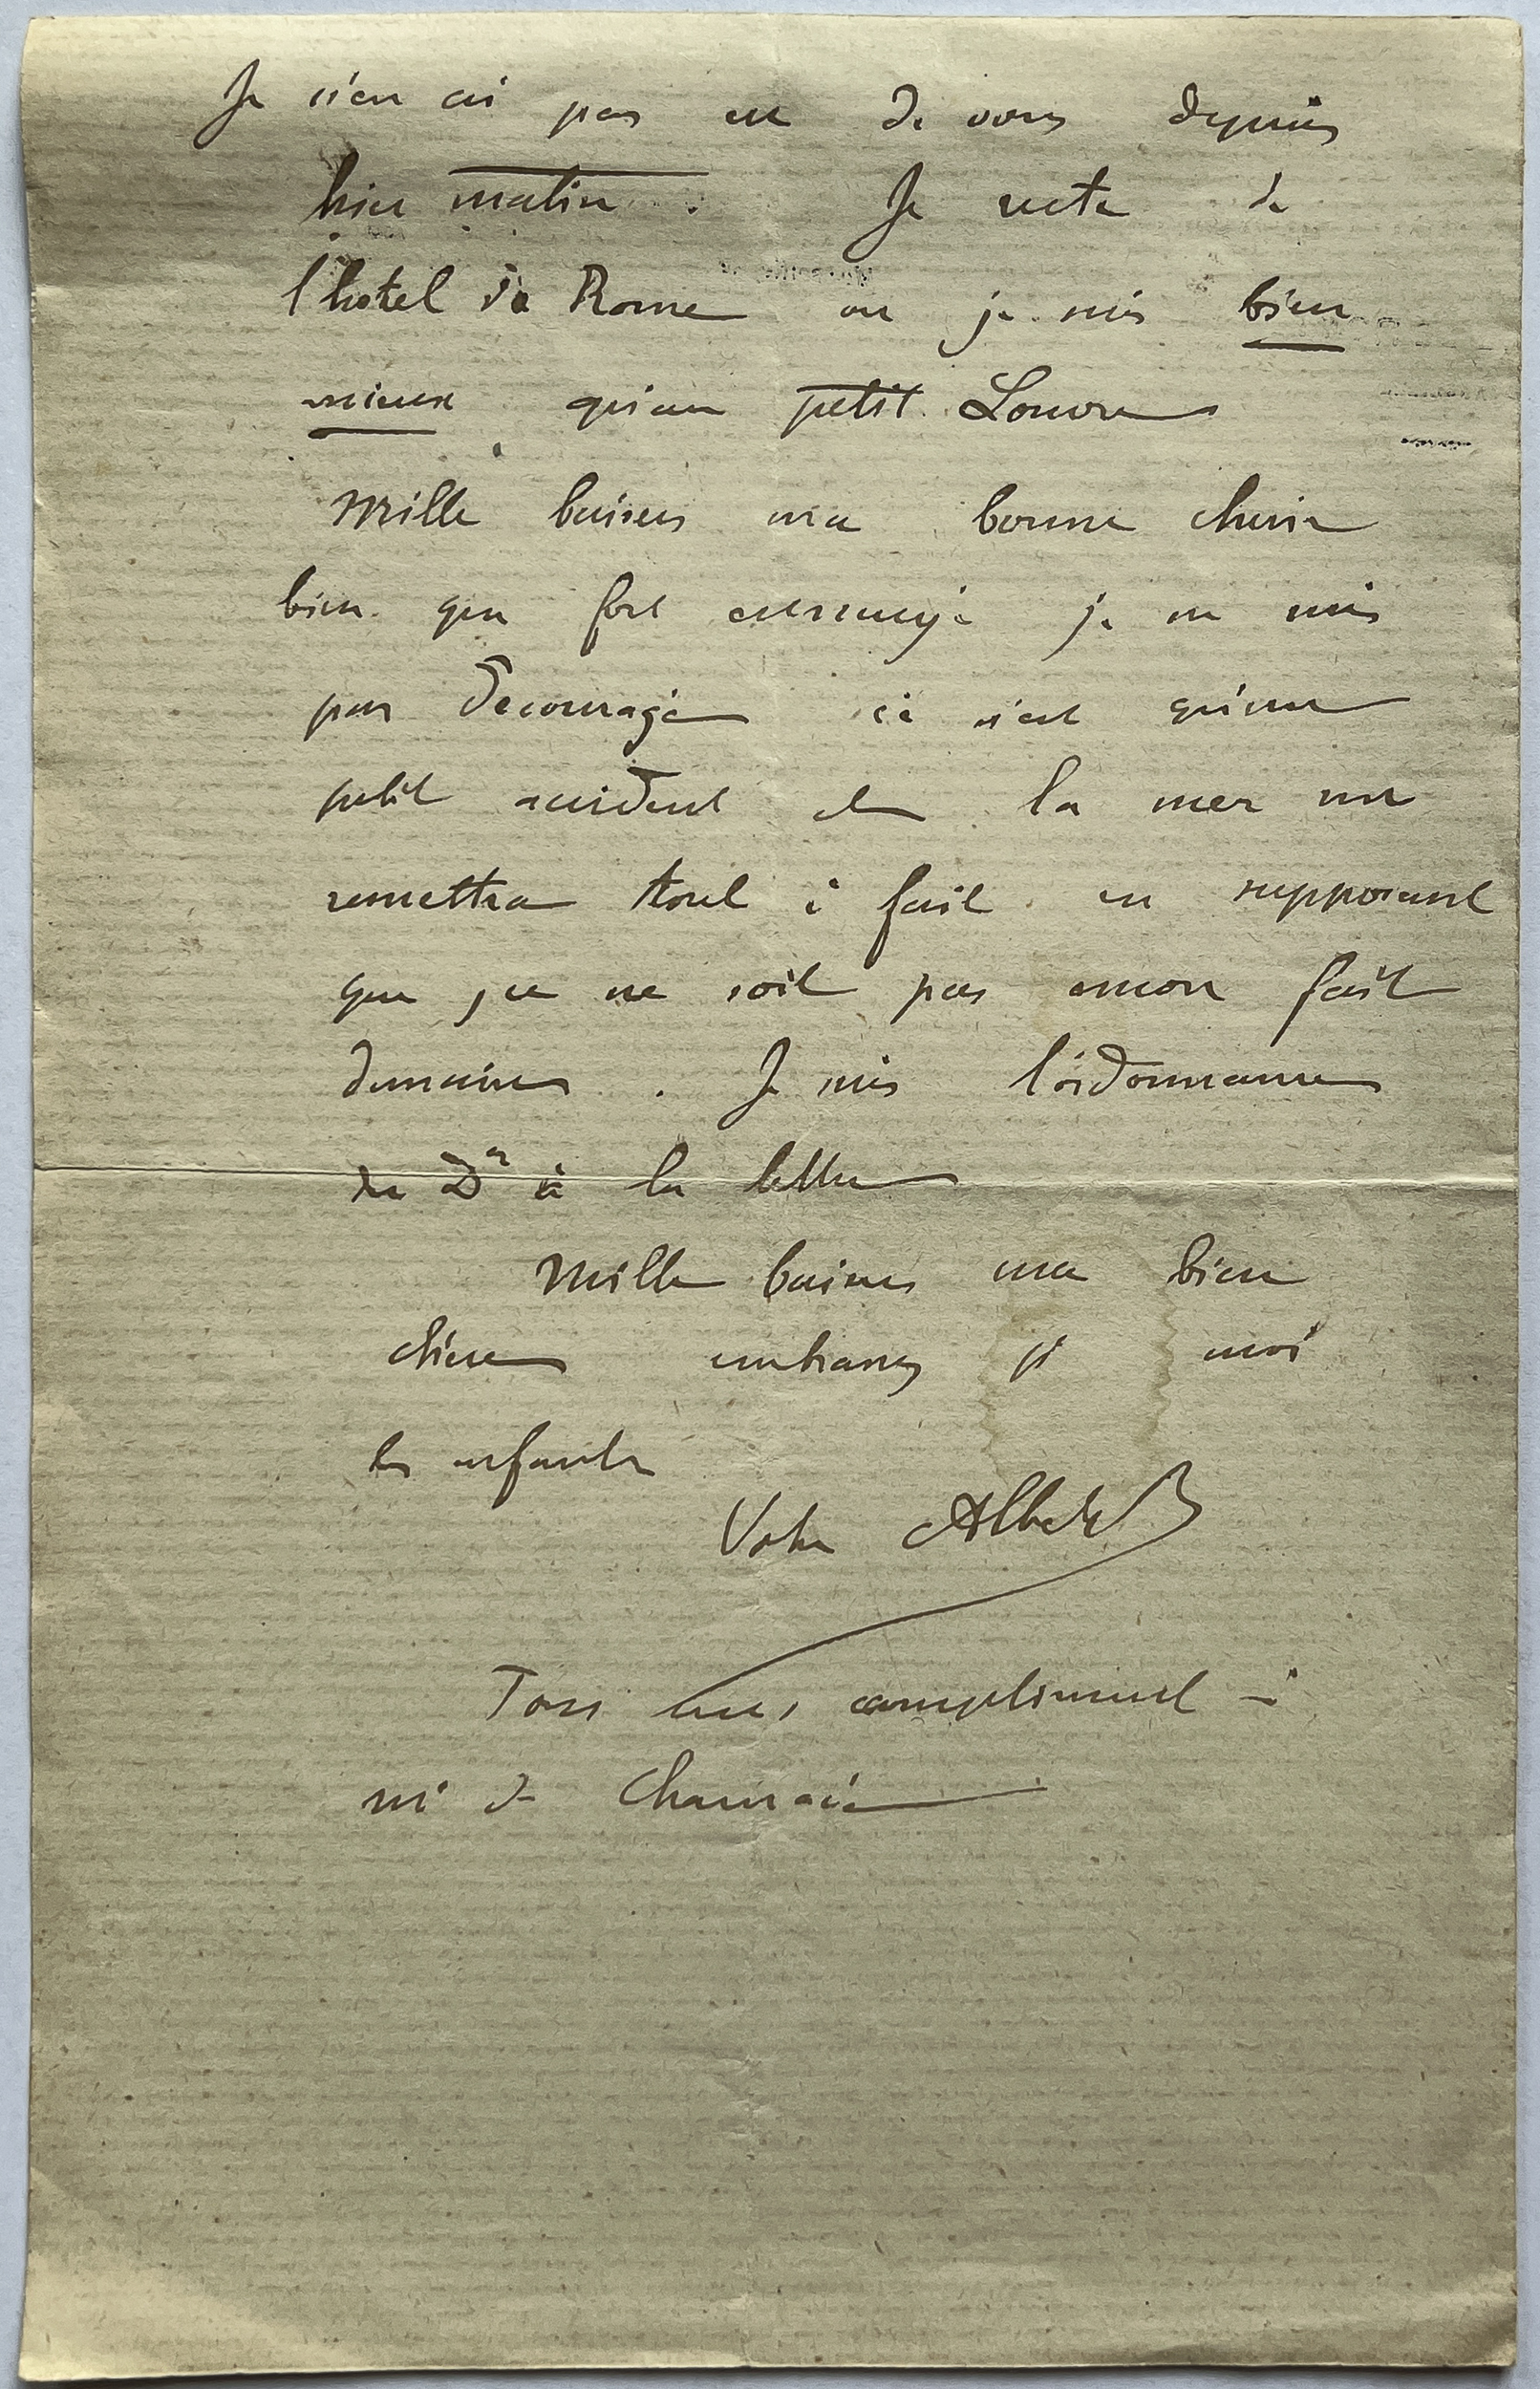 Je n'en ai pas eu de vous depuis
hier matin. Je reste de
l'hotel de Rome ou je suis bien
mieux qu'au petit Louvre
Mille baisers ma bonne cherie
bien que fort ennuyé je ne suis
pas decouragé ce n'est qu'un
petit accident et la mer me
remettra tout à fait en supposant
que je ne soit pas encore fait
demain. Je suis l'ordonnance
du Dr à la lettre
Mille baisers ma bien
chere embrassez pr moi
les enfants
Votre Albert
Tous mes compliment à
de